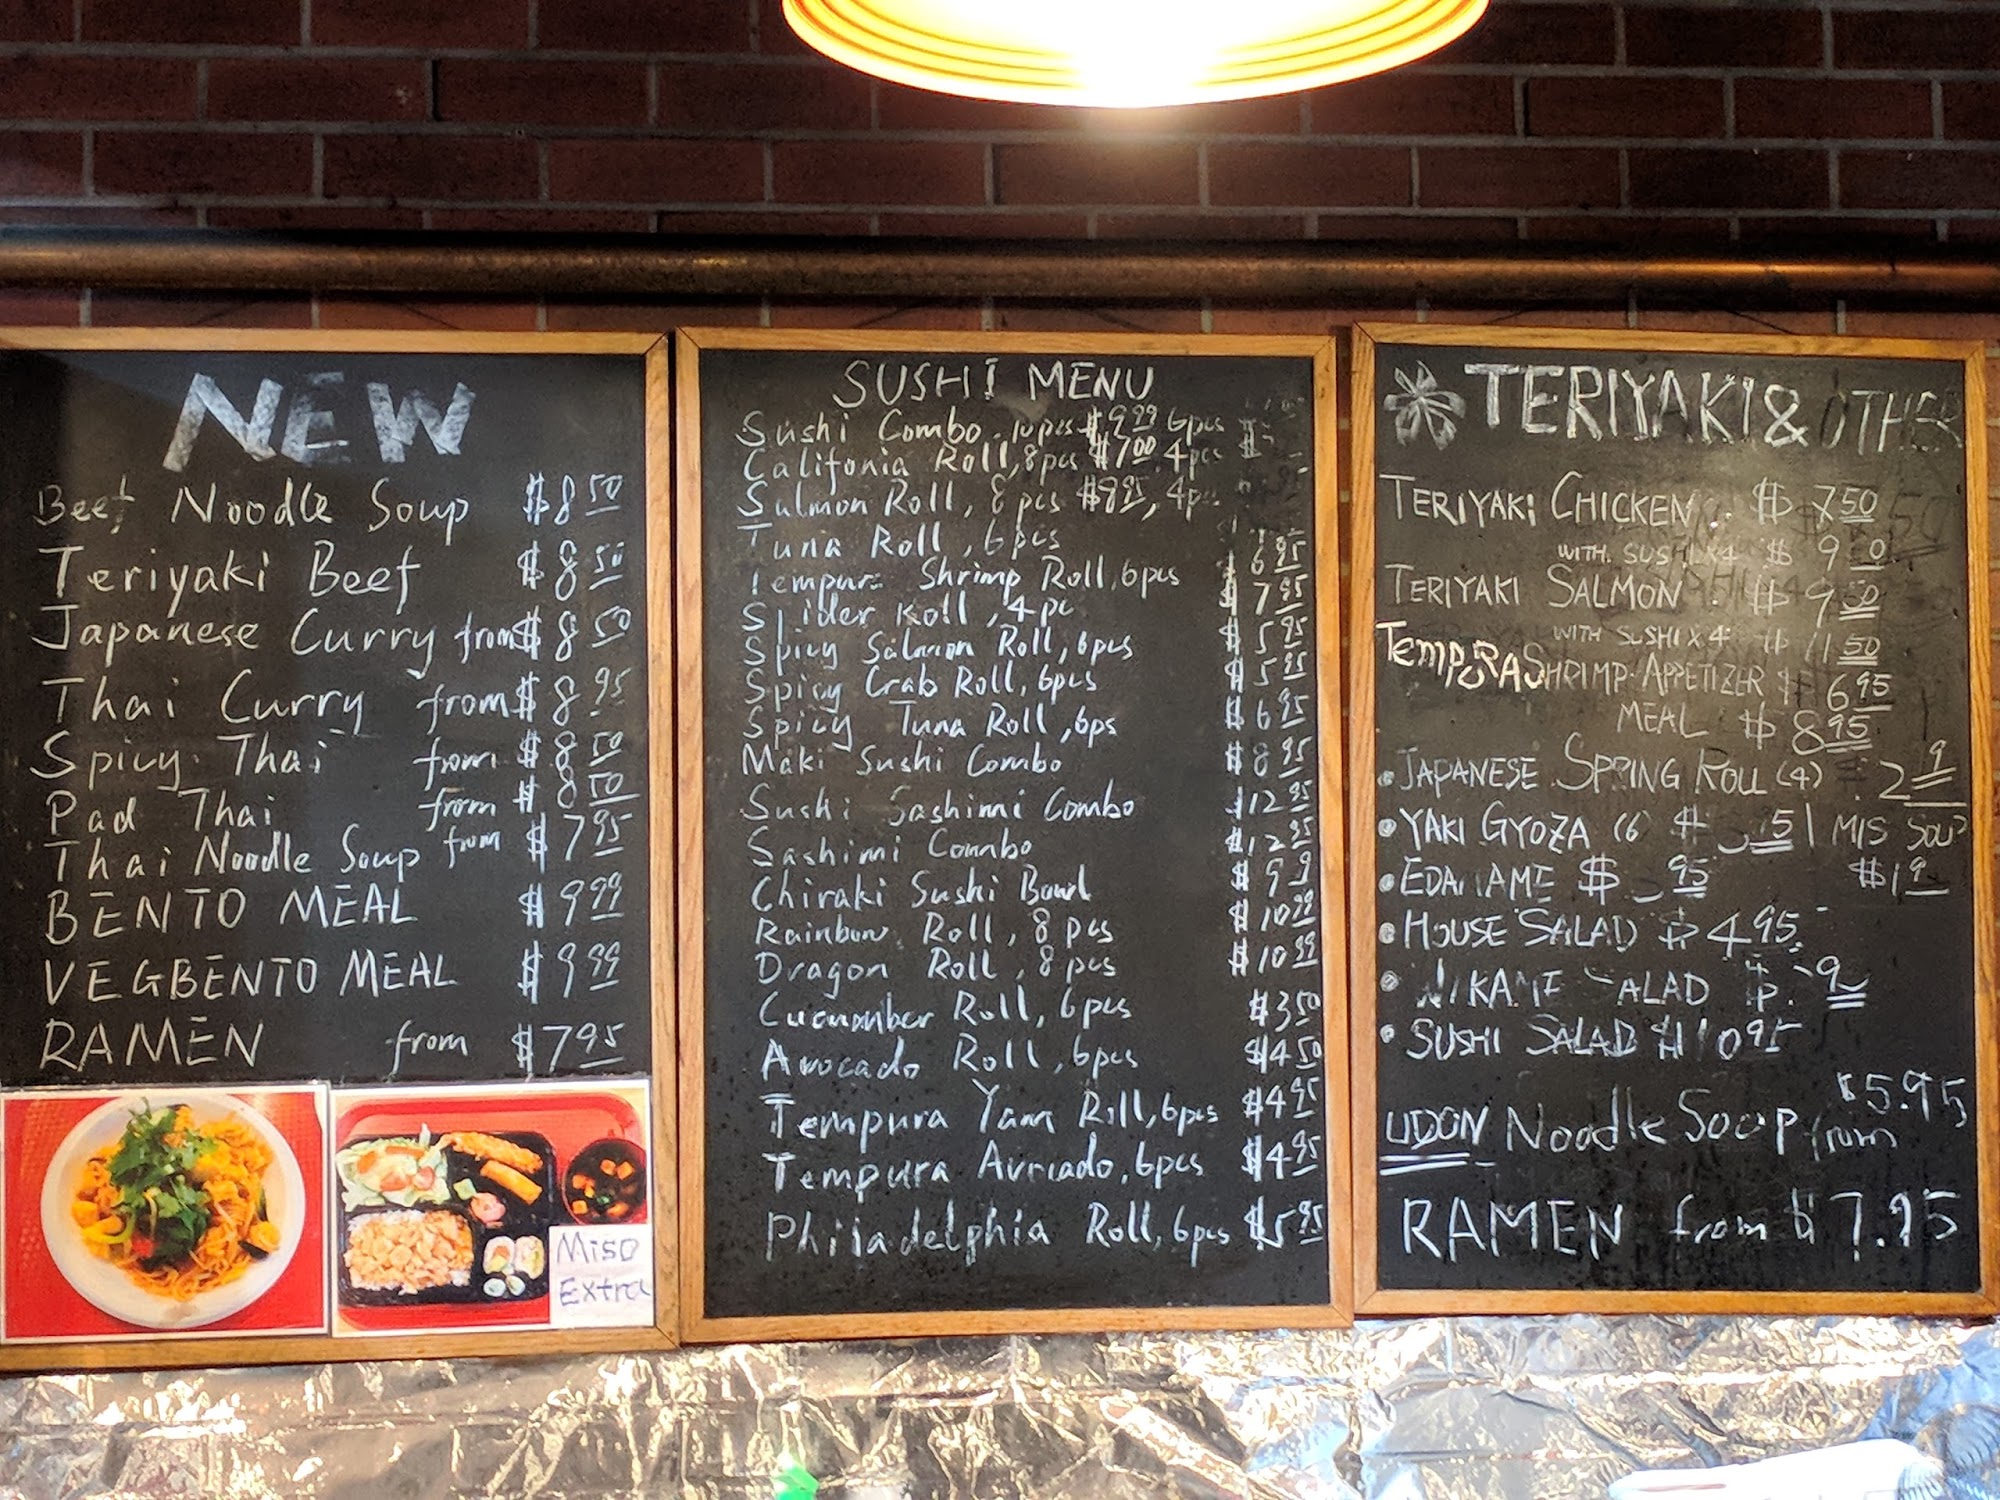 NEW
Beef Noodle Soup $8.50
Teriyaki Beef $8.50
Japanese Curry from $8.50
Thai Curry from $8.95
Spicy Thai from $8.50
Pad Thai from $8.50
Thai Noodle Soup from $7.95
BENTO MEAL $9.99
VEGBENTO MEAL $9.99
RAMEN from $7.95
Miso
Extra
SUSHI MENU
Sushi Combo, 10pcs $9.99 6pcs
Califonia Roll, 8pcs $7.00 4pcs $
Salmon Roll, 8 pcs $8.95, 4p
Tuna Roll, 6pcs
Tempura Shrimp Roll, 6pcs $6.95
Spider Roll, 4pc $7.95
Spicy Salmon Roll, 6pcs $5.95
Spicy Crab Roll, 6pcs $5.95
Spicy Tuna Roll, 6ps $6.95
Maki Sushi Combo $8.95
Sushi Sashimi Combo $12.95
Sashimi Combo $12.95
Chiraki Sushi Bowl $9.9
Rainbow Roll, 8 pcs $10.99
Dragon Roll, 8 pcs $10.99
Cucumber Roll, 6pcs $3.50
Avocado Roll, 6pcs $4.50
Tempura Yam Roll, 6pcs $4.95
Tempura Avocado, 6pcs $4.95
Philadelphia Roll, 6pcs $5.95
TERIYAKI & OTHE
TERIYAKI CHICKEN $7.50
WITH SUSHI X4 $9.50
TERIYAKI SALMON $9.50
WITH SUSHI X4 $11.50
TEMPURA SHRIMP APPETIZER $6.95
MEAL $8.95
JAPANESE SPRING ROLL (4) 2.9
YAKI GYOZA (6) $ MIS SOUP
EDAMAME $ .95 $1.9
HOUSE SALAD $4.95
WAKAME SALAD $
SUSHI SALAD $10.95
UDON Noodle Soup from $5.95
RAMEN from $7.95